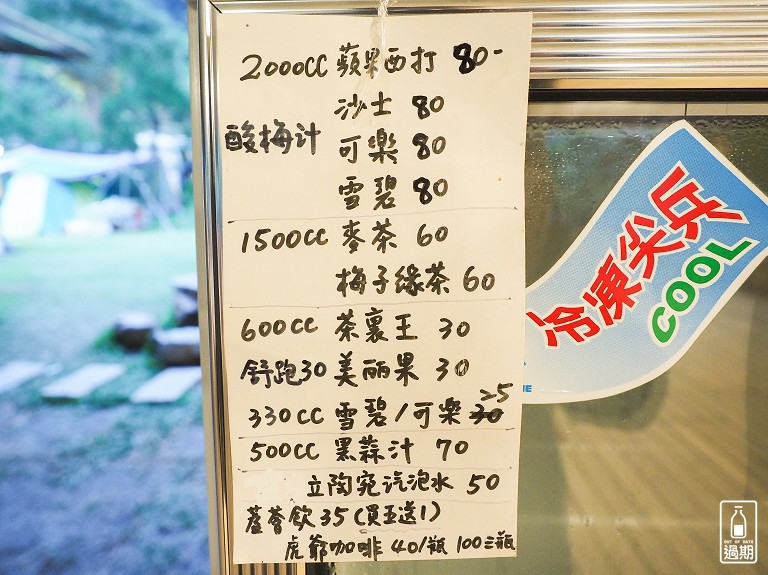 2000CC 蘋果西打 80-
沙士 80
酸梅汁 可樂 80
雪碧 80
1500CC 麥茶 60
梅子緣茶 60
600CC 茶裏王 30
舒跑30 美丽果 30
330CC 雪碧/可樂 30 25
500CC 黑蒜汁 70
立陶宛汽泡水 50
蘆薈飲 35(買五送1)
虎爺咖啡 40/瓶 100三瓶
冷凍尖兵
COOL
OUT OF DATE
過期